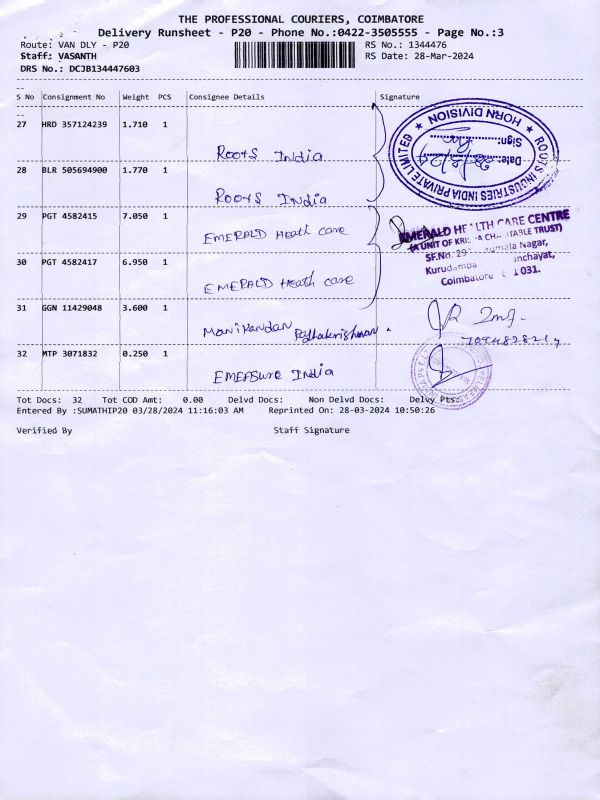 THE PROFESSIONAL COURIERS, COIMBATORE
Delivery Runsheet - P20 - Phone No.:0422-3505555 - Page No.:3
Route: VAN DLY - P20 RS No.: 1344476
Staff: VASANTH RS Date: 28-Mar-2024
DRS No.: DCJB134447603
S No Consignment No Weight PCS Consignee Details Signature
27 HRD 357124239 1.710 1
Roots India
28 BLR 505694900 1.770 1
Roots India
29 PGT 4582415 7.050 1
EMERALD Heath care
30 PGT 4582417 6.950 1
EMERALD Heath care
31 GGN 11429048 3.600 1
Manikandan Rathakrishnan.
32 MTP 3071832 0.250 1
EMEASURE India
ROOTS INDUSTRIES INDIA PRIVATE LIMITED
HORN DIVISION
Sign:
Date:
EMERALD HEALTH CARE CENTRE
(A UNIT OF TABLE TRUST)
SF.No. Nagar,
Coimbatore 031.
Tot Docs: 32 Tot COD Amt: 0.00 Delvd Docs: Non Delvd Docs: Delvy Pts:
Entered By :SUMATHIP20 03/28/2024 11:16:03 AM Reprinted On: 28-03-2024 10:50:26
Verified By Staff Signature